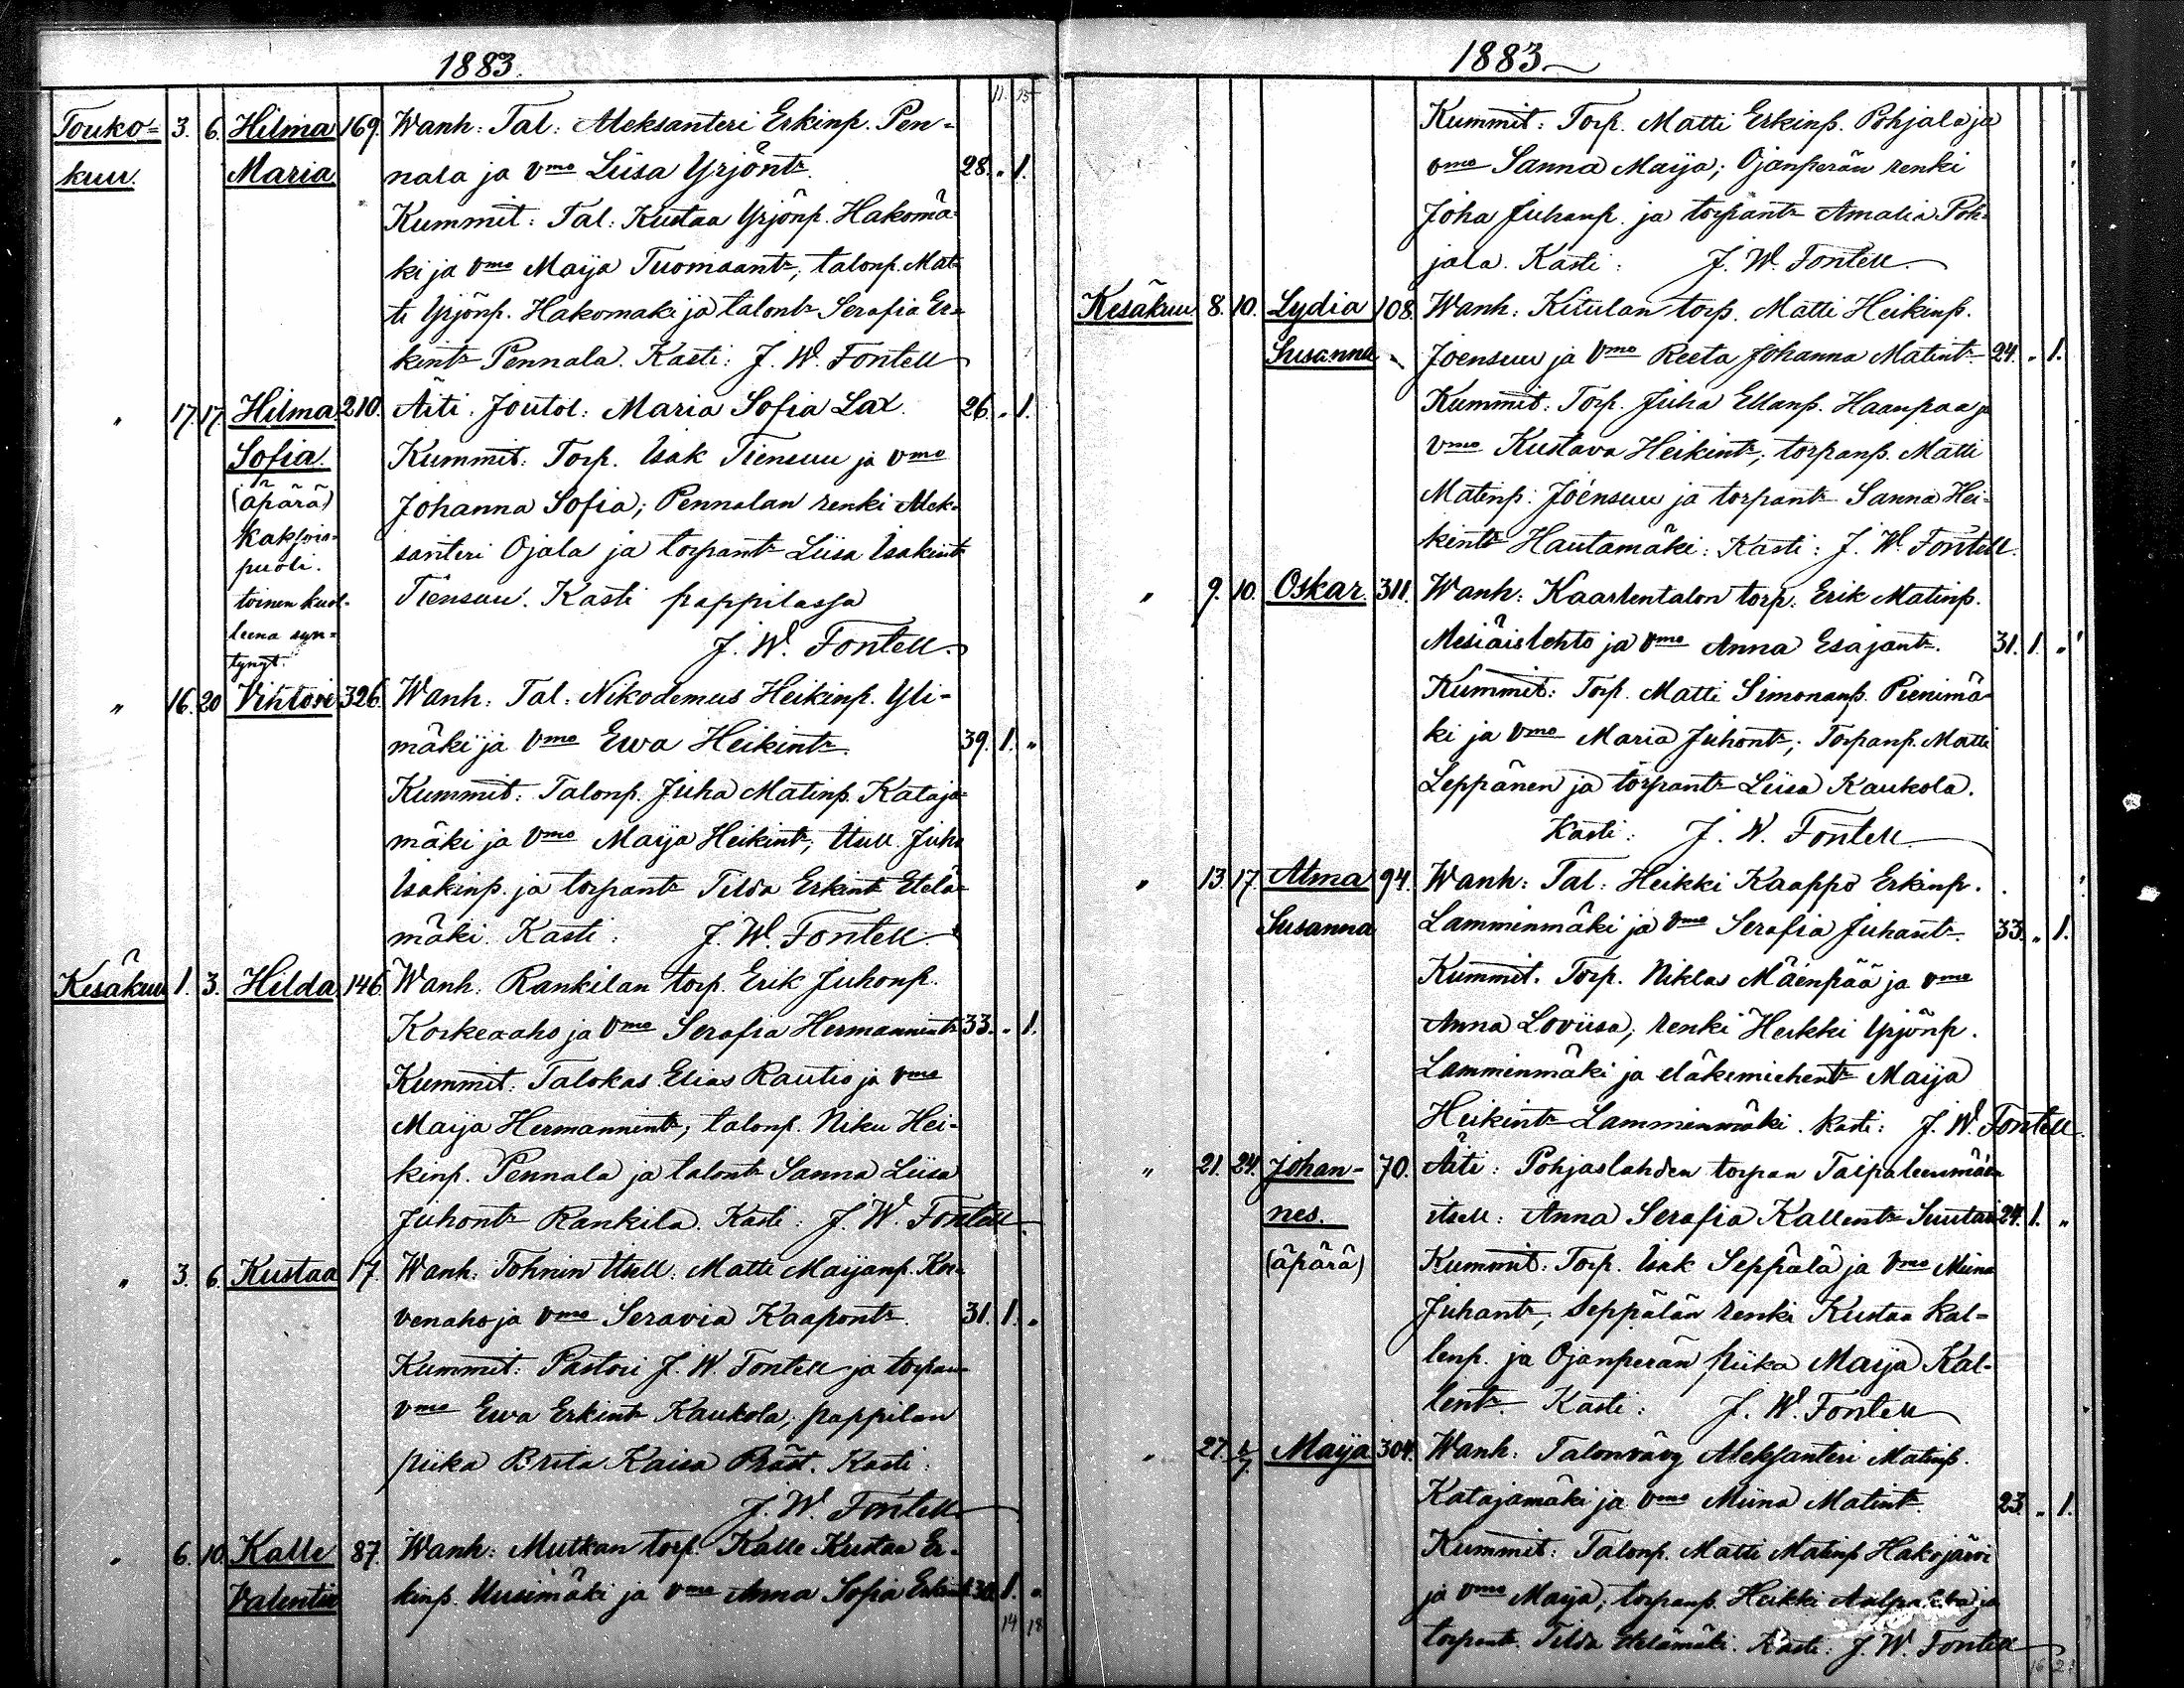 1883.
11. 15
Touko= 3. 6. Hilma 169. Wanh: Tal: Aleksanteri Erkinp. Pen=
kuu. Maria nala ja vmo Liisa Yrjönt. 28. „ 1.
Kummit: Tal: Kustaa Yrjönp. Hakomä=
ki ja vmo Maija Tuomaant; talonp. Mat=
ti Yrjönp. Hakomaki ja talont Serafia Er=
kint Pennala. Kasti: J. W. Fontell
„ 17. 17. Hilma 210. Äiti. Joutol: Maria Sofia Lax. 26. „ 1.
Sofia. Kummit: Torp. Isak Tiensuu ja vmo
(äpärä) Johanna Sofia; Pennalan renki Alek=
kaksois= santeri Ojala ja torpant Liisa Isakint
puoli. Tiensuu. Kasti pappilassa
toinen kuol=
leena syn= J. W. Fontell
tynyt.
„ 16. 20 Vihtori 326. Wanh: Tal: Nikodemus Heikinp. Yli=
mäki ja vmo Ewa Heikint. 39. 1. „
Kummit: Talonp. Juha Matinp. Kataja=
mäki ja vmo Maija Heikint; Itsll. Juho
Isakinp. ja torpant Tilda Erkint Etelä=
mäki. Kasti: J. W. Fontell
Kesäkuu 1. 3. Hilda 146. Wanh. Rankilan torp. Erik Juhonp.
Korkeaaho ja vmo Serafia Hermannint 33. „ 1.
Kummit: Talokas Elias Rautio ja vmo
Maija Hermannint; talonp. Niku Hei=
kinp. Pennala ja talont Sanna Liisa
Juhont Rankila. Kasti: J. W. Fontell
„ 3. 6. Kustaa 17. Wanh: Tohnin Itsll: Matti Maijanp. Kor=
venaho ja vmo Seravia Kaapont. 31. 1. „
Kummit: Pastori J. W. Fontell ja torpan
vmo Ewa Erkint Kaukola; pappilan
piika Brita Kaisa Präst. Kasti:
J. W. Fontell
„ 6. 10. Kalle 87. Wanh: Mutkan torp. Kalle Kustaa Er=
Valentin kinp. Uusimäki ja vmo Anna Sofia Erkint 30. 1. „
14 18
1883
Kummit: Torp. Matti Erkinp. Pohjala ja
vmo Sanna Maija; Ojanperän renki
Joha Juhanp. ja torpant Amalia Poh=
jala. Kasti: J. W. Fontell
Kesäkuu 8. 10. Lydia 108. Wanh: Kitulan torp. Matti Heikinp.
Susanna Joensuu ja vmo Reeta Johanna Matint 24. „ 1.
Kummit: Torp. Juha Ellanp. Haanpaa ja
vmo Kustava Heikint; torpanp. Matti
Matinp: Joensuu ja torpant Sanna Hei=
kint Hautamäki: Kasti: J. W. Fontell
„ 9. 10. Oskar 311. Wanh: Kaarlentalon torp: Erik Matinp.
Mesiäislehto ja vmo Anna Esajant. 31. 1. „
Kummit: Torp. Matti Simonanp. Pienimä=
ki ja vmo Maria Juhont; Torpanp. Matti
Leppänen ja torpant Liisa Kaukola.
Kasti: J. W. Fontell
„ 13. 17. Alma 94. Wanh: Tal: Heikki Kaappo Erkinp.
Susanna Lamminmäki ja vmo Serafia Juhant. 33. „ 1.
Kummit. Torp. Niklas Mäenpää ja vmo
Anna Loviisa; renki Heikki Yrjönp.
Lamminmäki ja eläkemiehent Maija
Heikint Lamminmäki. Kasti: J. W. Fontell
„ 21. 24. Johan= 70. Äiti: Pohjaslahden torpan Taipaleenmäen
nes. itsell: Anna Serafia Kallent Suutari 24. 1. „
(äpärä) Kummit: Torp. Isak Seppälä ja vmo Miina
Juhant; Seppälän renki Kustaa Kal=
lenp. ja Ojanperän piika Maija Kal=
lent. Kasti: J. W. Fontell
„ 27. Maija 304. Wanh: Talonvävy Aleksanteri Matinp.
Katajamäki ja vmo Miina Matint. 23. „ 1.
Kummit: Talonp. Matti Matinp Hakojärvi
ja vmo Maija; torpanp. Heikki ja
torpant. Tilda Etelämäki. Kasti: J. W. Fontell
16 2